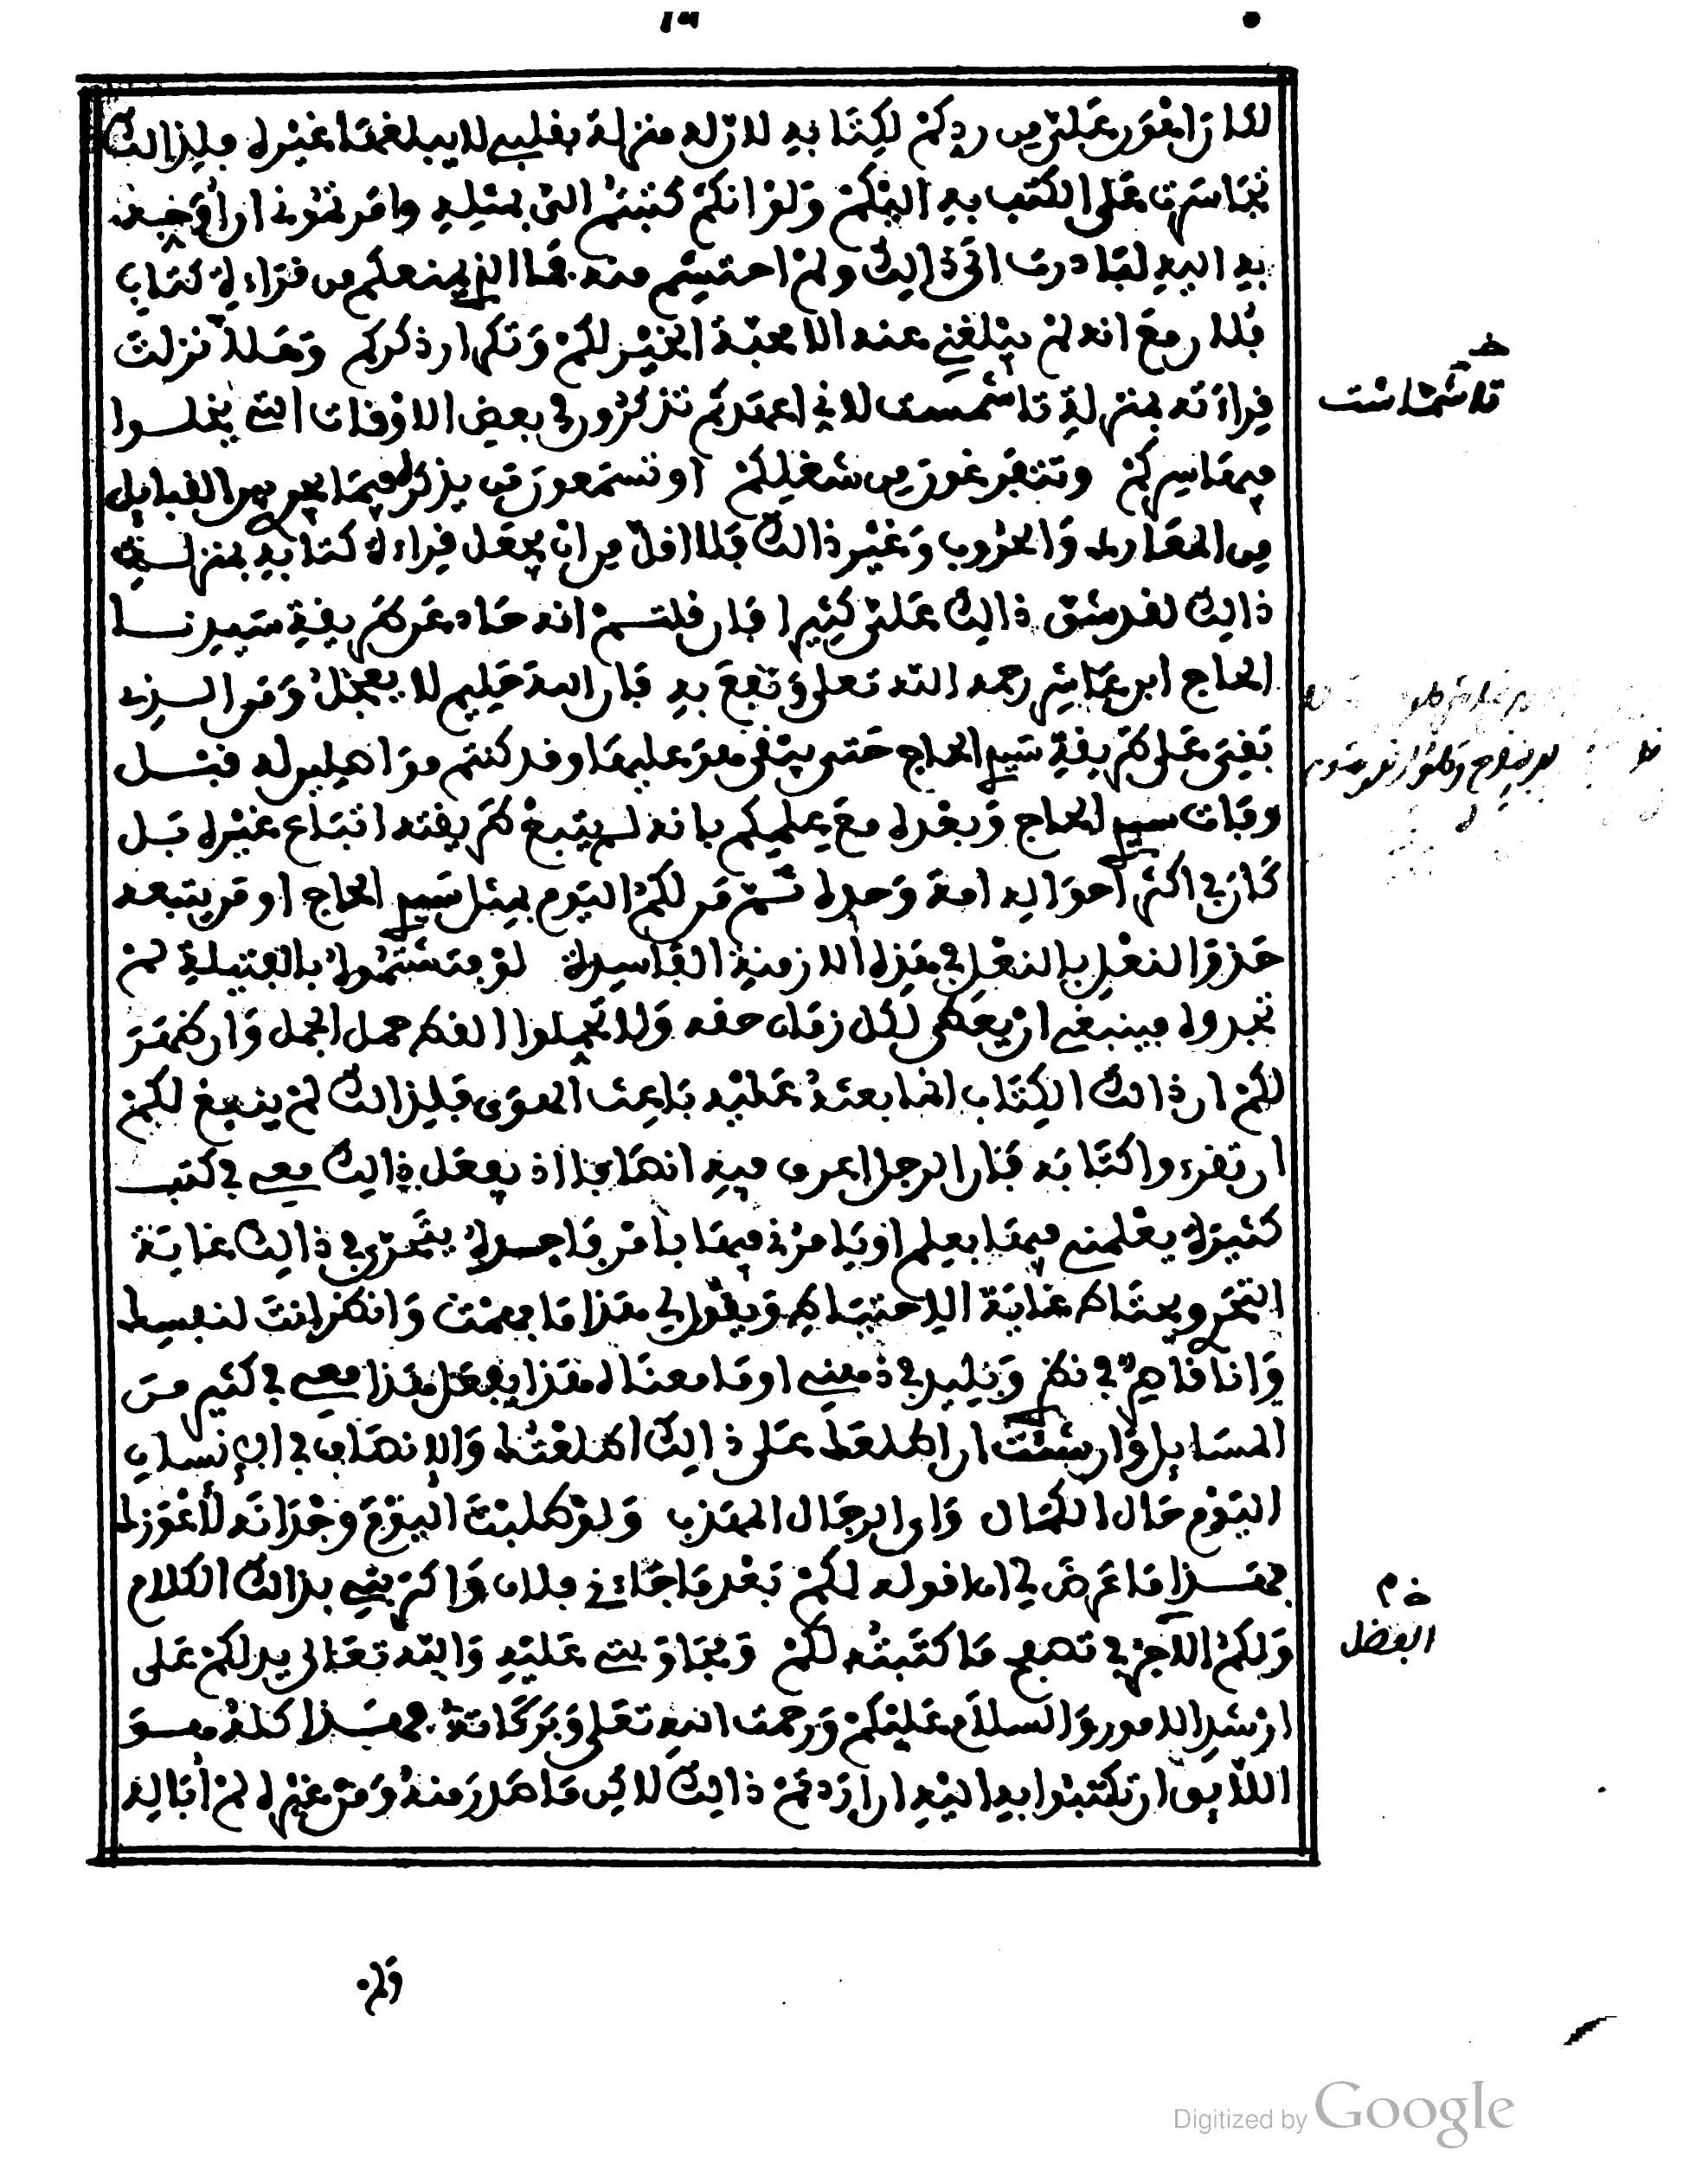 ١٦
لكان اهون علي من ردكم لكتابه لان له منزلة بقلبي لا يبلغها غيره فلذالك
تجاسرت على الكتب به اليكم ولو انكم كتبتم الي بمثله وامرتموني ان أوجه
به اليه لبادرت الى ذالك ولم احتشم منه فما الذي يمنعكم من قراءة كتاب
فلان مع انه لم يبلغني عنه الا محبة الخير لكم وتكرار ذكركم وهلا نزلت
قراءته بمنزلة تاشمست لاني اعهدكم تذكرون في بعض الاوقات التي يخلوا
فيها سركم وتتفرغون من شغلكم او تستمعون من يذكر فيما يجري بين القبايل
من المعارك والحروب وغير ذالك فلا اقل من ان يجعل قراءة كتابه بمنزلة
ذالك لقد شق ذالك علي كثيرا فان قلتم انه حاد عن طريقة سيدنا
الحاج ابن عاشر رحمه الله تعلى ونفع به فان الله حليم لا يعجل ومن الذي
بقي على طريقة سيدي الحاج حتى يبقى هو عليها وقد كنتم مواصلين له قبل
وفات سيدي الحاج وبعده مع علمكم بانه لم ينبغ طريقته اتباع غيره بل
كان في اكثر احواله امة وحده ثم من لكم اليوم بمثل سيدي الحاج او من يتبعه
حذو النعل بالنعل في هذه الازمنة الفاسدة لو فتشتموه بالفتيلة لم
تجدوه فينبغي ان يعطى لكل زمان حقه ولا تحملوا الفكر حمل الجمل وان ظهر
لكم ان ذالك الكتاب انما بعثه عليه باعث الهوى فلذالك لم ينبغ لكم
ان تقرءوا كتابه فان الرجل اعرف فيه انصافا اذ يفعل ذالك معي في كتب
كثيرة يعلمني فيما يعلم او يامرني فيما يامر واحدة يتحرى في ذالك غاية
التحري ويحتاط غاية الاحتياط ويقول لي هذا ما فهمت وانظر انت لنفسك
وانا قاصر في نظري وبليد في ذهني او ما معناه هذا يفعل هذا معي في كثير من
المسايل وان شئت ان اطلعك على ذالك اطلعتك والانصاف في الانسان
اليوم حال الكمال واي الرجال المهذب ولو طلبت اليوم وجدانه لأعوزك
فهذا ما عرض لي اما قوله لكم بعد ما جاءني فلان واكربني بذالك الكلام
ولكم الاجر في تصفح ما كتبته لكم ومجاوبتي عليه والله تعالى يدلكم على
ارشد الامور والسلام عليكم ورحمت الله تعلى وبركاته فهذا كله هو
اللايق ان تكتبوا به اليه ان اردتم ذالك لاكن ما صدر منه ومن غيره لم أباله
تاشماشت
الفضل
ولم
Digitized by Google